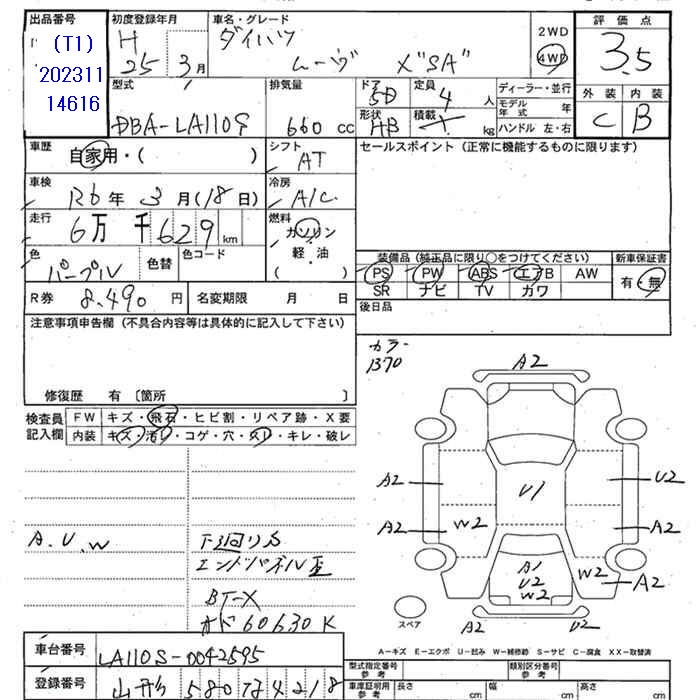 出品番号
(T1)
202311
14616
初度登録年月
H
25 3月
車名・グレード
ダイハツ
ムーヴ X"SA"
2WD
4WD
評価点
3.5
外装 内装
C B
型式
DBA-LA110S
排気量
660 cc
ドア
5D
形状
HB
定員
4 人
積載
kg
ディーラー・並行
モデル年式 年
ハンドル 左・右
車歴
自家用・( )
シフト
AT
セールスポイント(正常に機能するものに限ります)
車検
R6年 3月(18日)
冷房
A/C
走行
6万 千629 km
燃料
ガソリン
軽・油
( )
色
パープル
色替
色コード
装備品(純正品に限り○をつけてください)
新車保証書
PS PW ABS エアB AW
SR ナビ TV カワ
有・無
R券 8,490 円
名変期限 月 日
後日品
注意事項申告欄(不具合内容等は具体的に記入して下さい)
修復歴 有〔箇所 〕
カラー
1370
検査員
記入欄
FW キズ・飛石・ヒビ割・リペア跡・X要
内装 キズ・汚レ・コゲ・穴・スレ・キレ・破レ
A2
A2
U2
U1
A2
W2
A2
A.U.W
下回りS
エンドパネル歪
BT-X
オド60630K
A1
U2
W2
W2
A2
A2
U2
スペア
A-キズ E-エクボ U-凹み W-補修跡 S-サビ C-腐食 XX-取替済
車台番号 LA110S-0042595
登録番号 山形580 4218
型式指定番号
参考
類別区分番号
参考
車庫証明用
参考
長さ cm
幅 cm
高さ cm